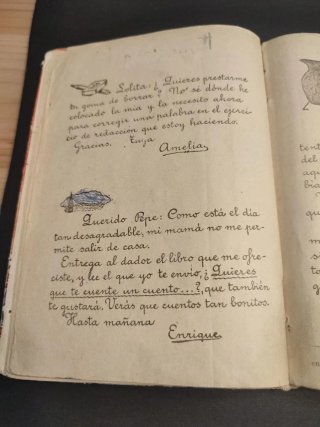 Lolita: ¿ Quieres prestarme
tu goma de borrar? No sé dónde he
colocado la mía y la necesito ahora
para corregir una palabra en el ejerci-
cio de redacción que estoy haciendo.
Gracias. Tuya
Amelia.
Querido Pepe: Como está el día
tan desagradable, mi mamá no me per-
mite salir de casa.
Entrega al dador el libro que me ofre-
ciste, y lee el que yo te envío, ¿Quieres
que te cuente un cuento...?, que también
te gustará. Verás que cuentos tan bonitos.
Hasta mañana
Enrique.
tent
del
aqu
bia